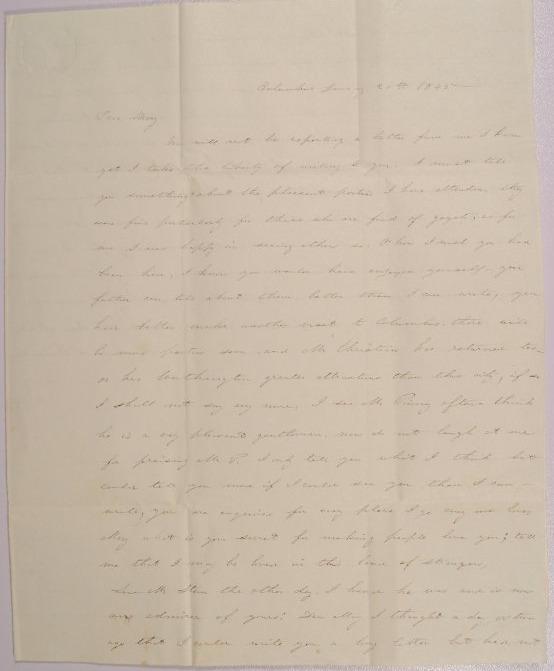 Columbus 20th 1845
Dear Mary
You will not be expecting a letter from me I know
yet I take the liberty of writing to you. I must tell
you something about the pleasent parties I have attended they
were fine particularly for those who are fond of gayety; as for
me I was happy in seeing others so. I wish you had
been here, I know you would have enjoyed yourself your
father can tell about them better than I can write, you
had better make another visit to Columbus. there will
be more parties soon. and Mr Christian has returned too
or has Worthington greater attractions than this city, if so
I shall not say any more. I see Mr Perry often & think
he is a very pleasent gentleman. now do not laugh at me
for praising Mr P. I only tell you what I think but
could tell you more if I could see you than I can
write, you are enquired for every place I go
Mary what is your secret for making people love you; tell
me that I may be loved in this land of strangers,
Mr the other day, I he was one is now
an admirer of yours; Dear Mary I thought a day or two
ago that I would write you a long letter but had not